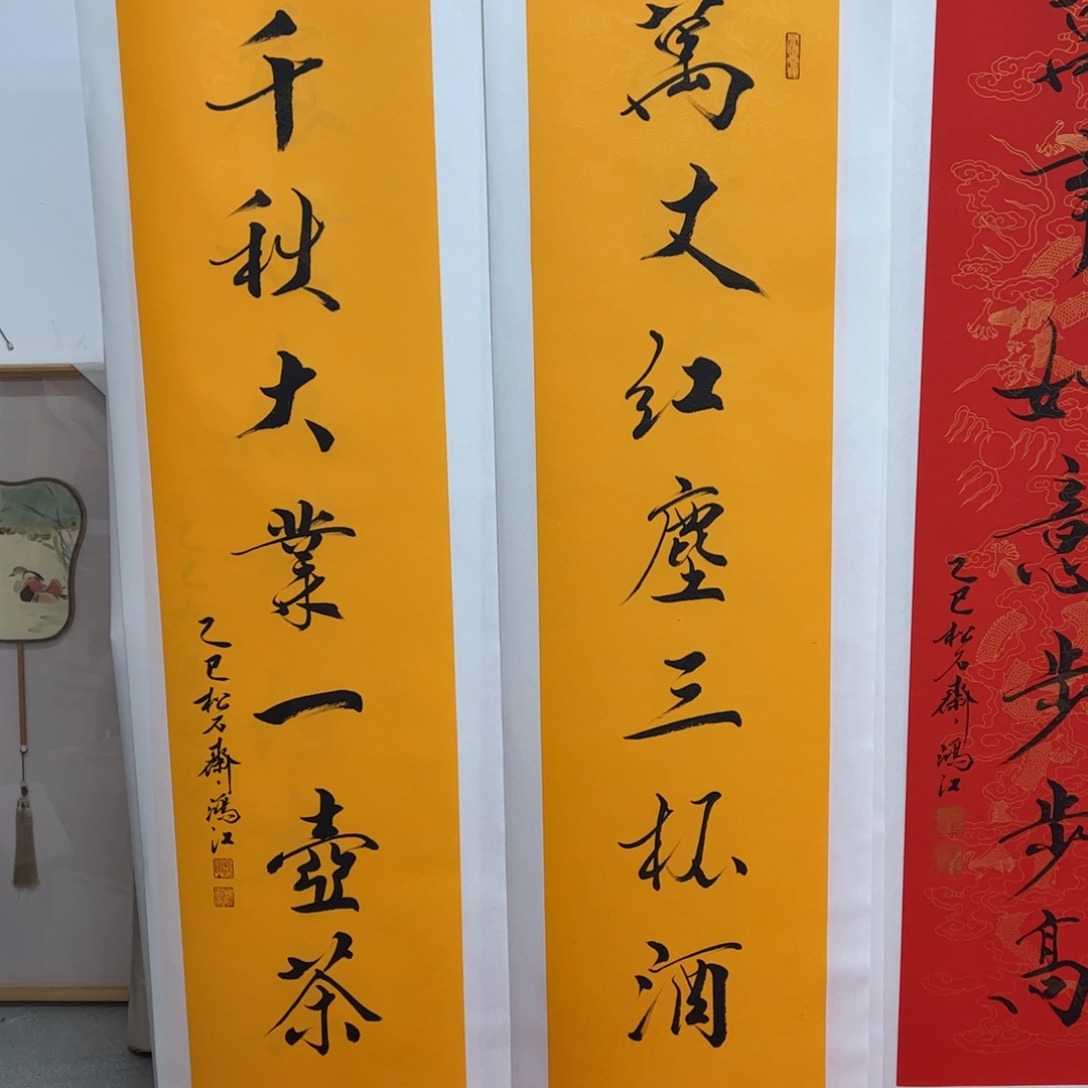 萬事如意步步高
乙巳松石齋鴻江
萬丈紅塵三杯酒
千秋大業一壺茶
乙巳松石齋鴻江